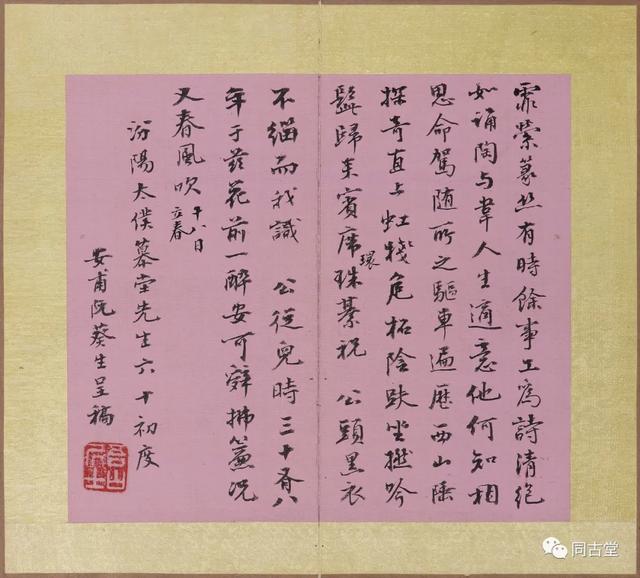 霏縈篆丝有時餘事工為詩清絶
如誦陶与韋人生適意他何知相
思命駕随所之驅車遍歷西山陲
探奇直上虹棧危柘陰趺坐撚吟
髭歸来賓席環珠綦祝 公頭黑衣
不緇而我識 公從兒時三十有八
年于兹花前一醉安可辭拂簾况
又春風吹 十八日立春
汾陽太僕慕堂先生六十初度
安甫阮葵生呈稿
同古堂